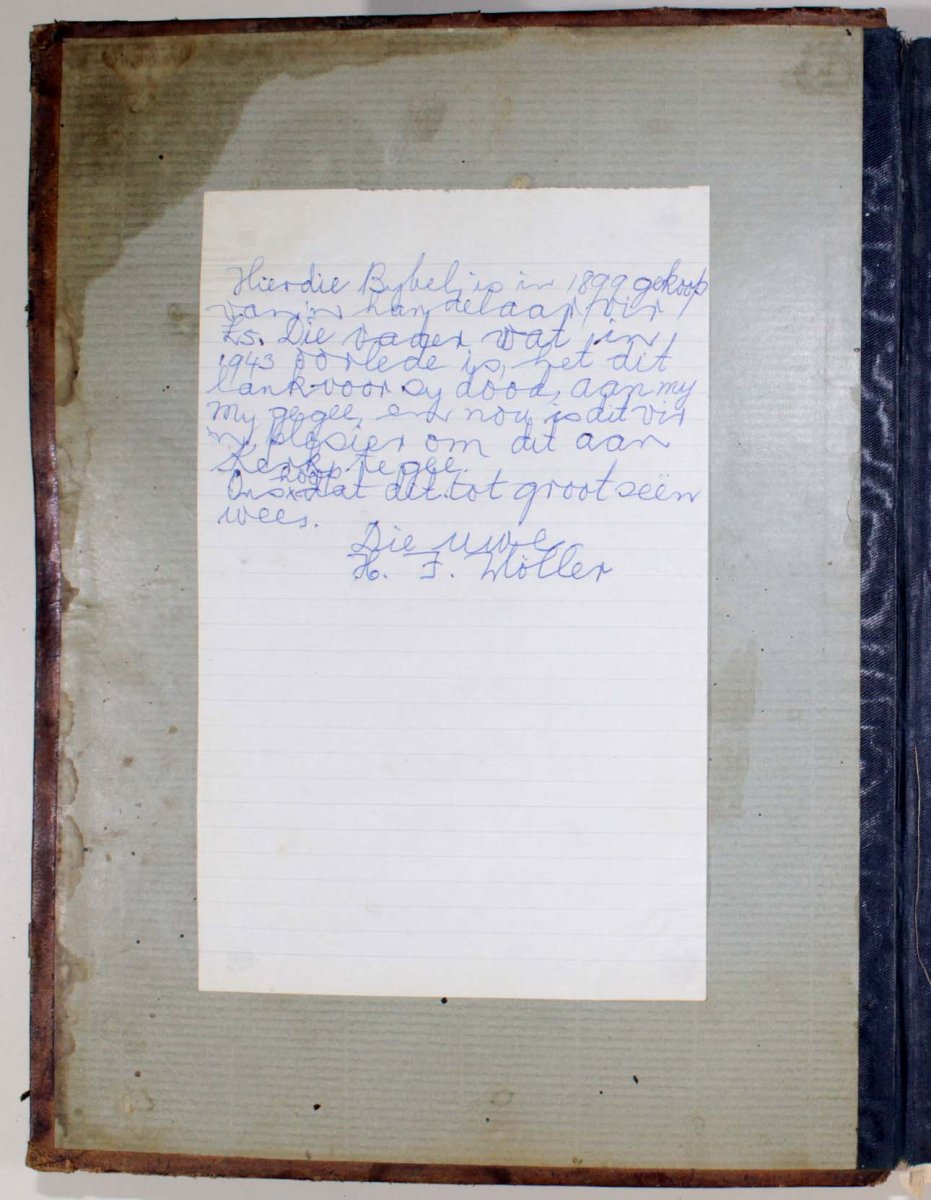 Hierdie Bybel is in 1899 gekoop
van 'n handelaar vir
£5. Die vader wat in
1943 oorlede is, het dit
lank voor sy dood, aan my
my gegee, en nou is dit vir
'n plesier om dit aan
Kerk te gee.
hoop
Ons x dat dit tot groot seën
wees.
Die uwe
H. F. Möller